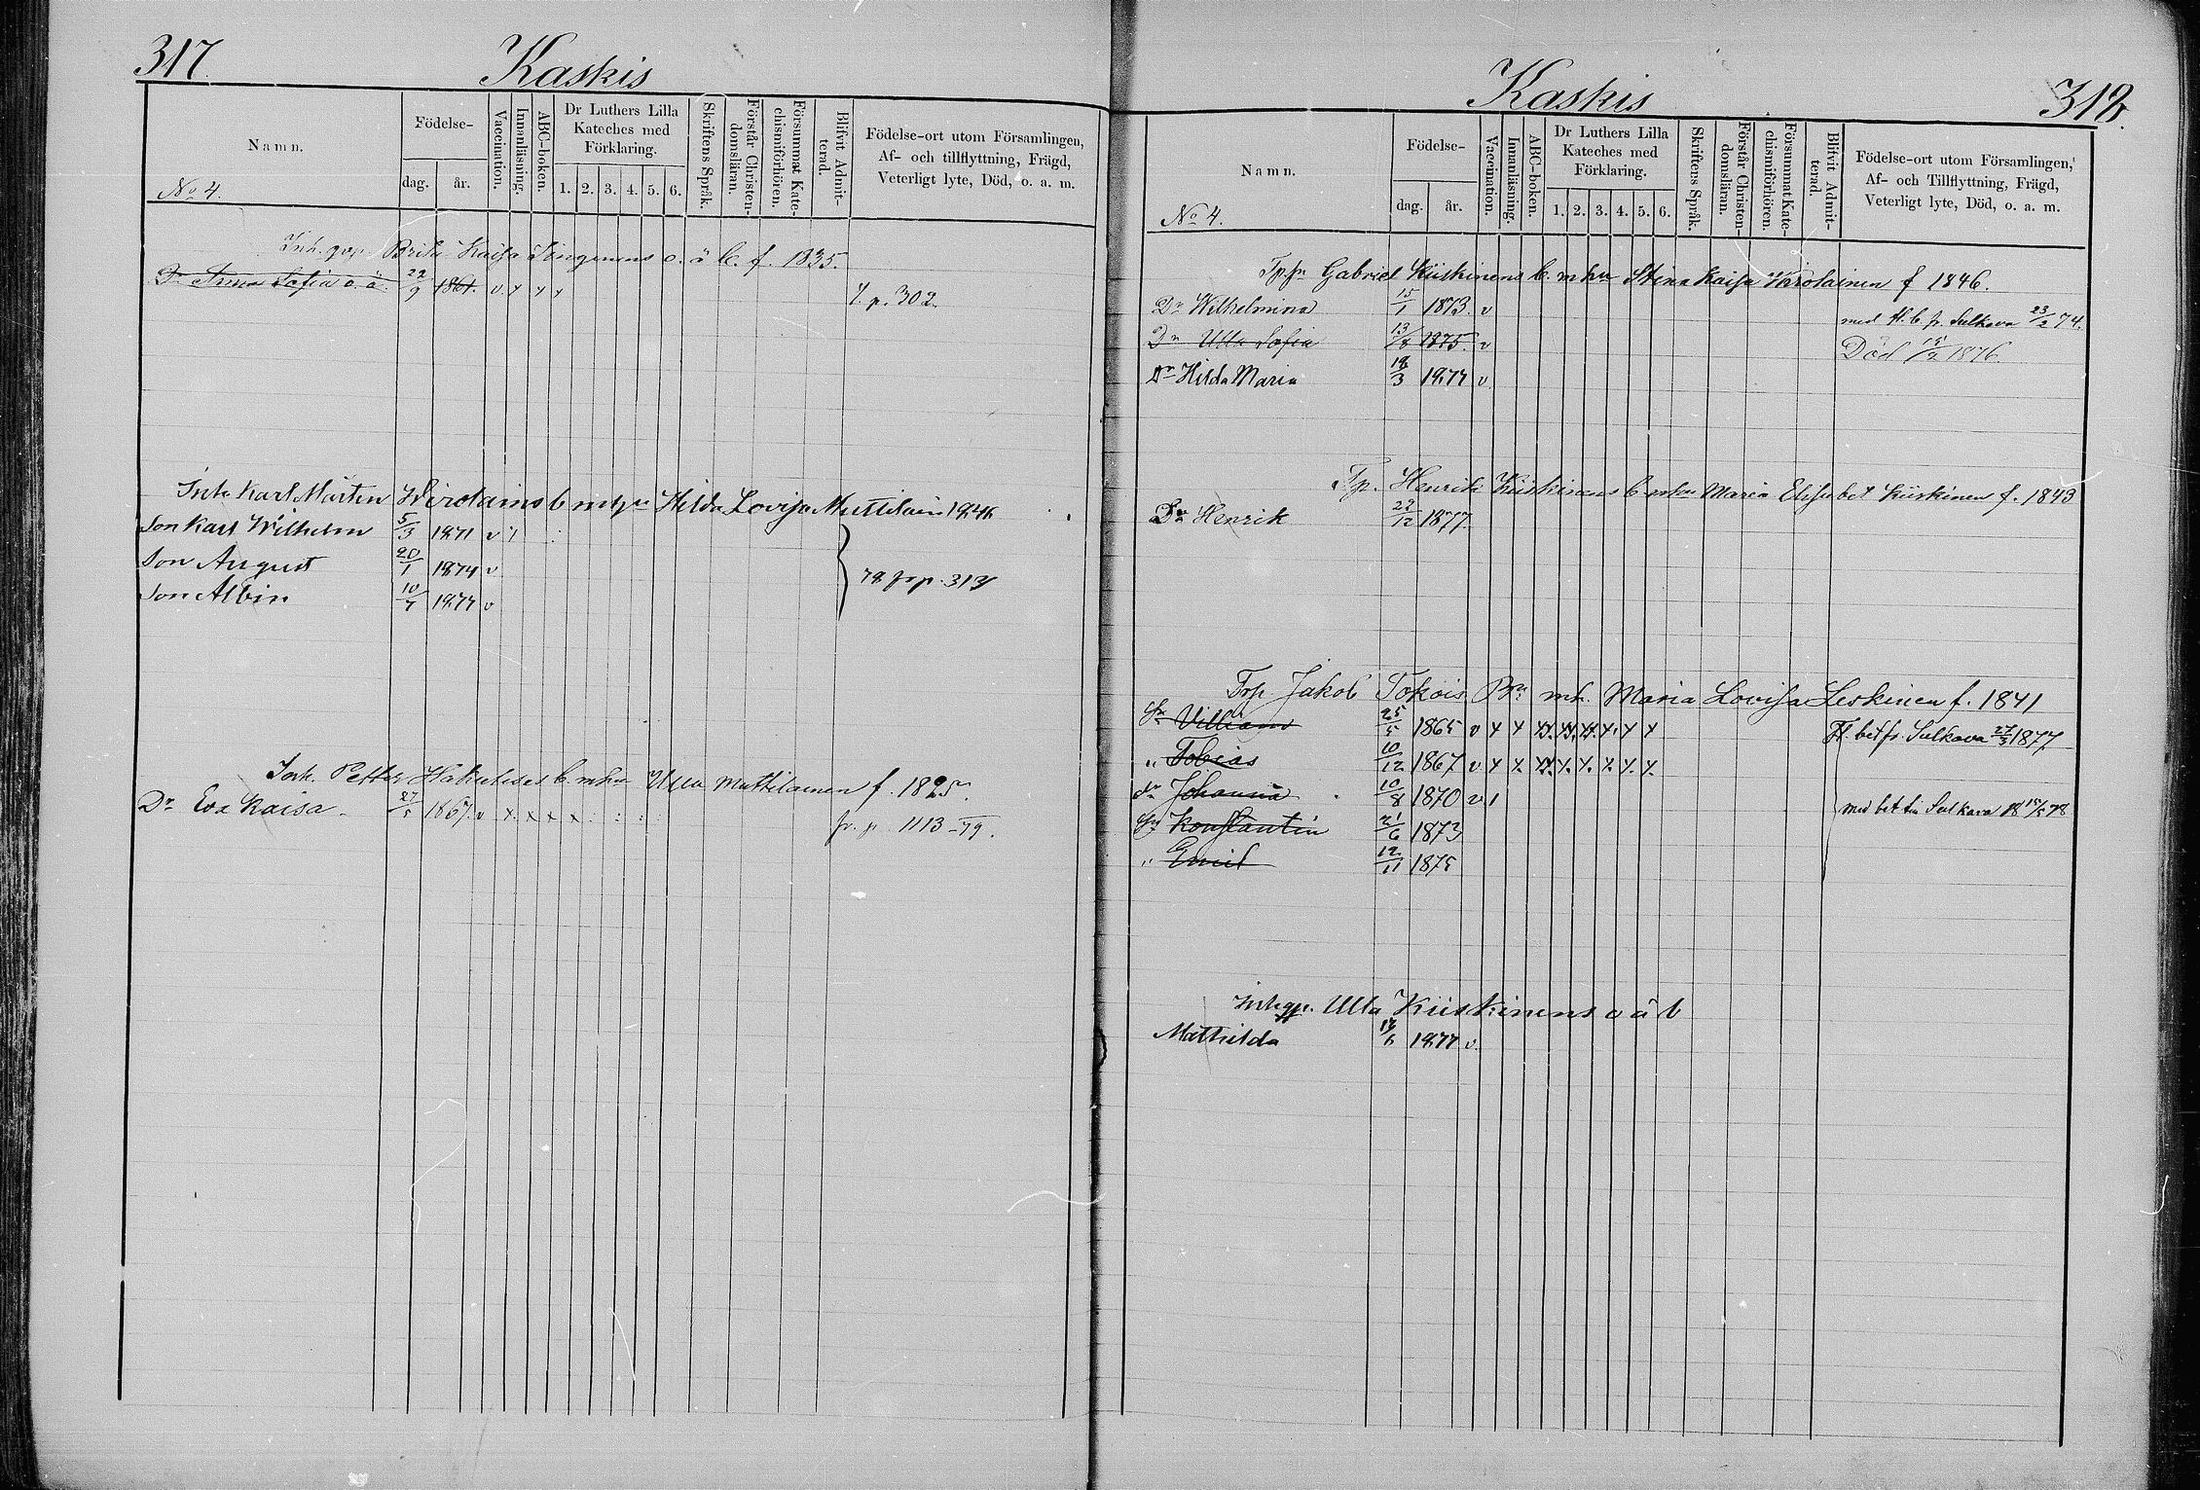 317.
Kaskis
Namn.
Födelse-
dag.
år.
Vaccination.
Innanläsning.
ABC-boken.
Dr Luthers Lilla
Kateches med
Förklaring.
1. 2. 3. 4. 5. 6.
Skriftens Språk.
Förstår Christen-
domsläran.
Försummat Kate-
chismiförhören.
Blifvit Admit-
terad.
Födelse-ort utom Församlingen,
Af- och tillflyttning, Frägd,
Veterligt lyte, Död, o. a. m.
No 4.
Inh. Brita Kaisa o. ä b. f. 1835.
Dr Anna Sofia o. ä. 22/9 1861. v x x x
p. 302.
Inh. Karl Mårten Wirolains b mhu Hilda Lovisa Muttilain 1846
Son Karl Wilhelm 5/3 1871 v
Son August 20/1 1874 v
Son Albin 10/7 1877 v
78 fr p. 313
Inh. Petter b. mhu Ulla Muttilainen f. 1825.
Dr Eva Kaisa. 27/5 1867. v x x x x
fr. p. 1113-79.
Kaskis
318.
Namn.
Födelse-
dag.
år.
Vaccination.
Innanläsning.
ABC-boken.
Dr Luthers Lilla
Kateches med
Förklaring.
1. 2. 3. 4. 5. 6.
Skriftens Språk.
Förstår Christen-
domsläran.
Försummat Kate-
chismiförhören.
Blifvit Admit-
terad.
Födelse-ort utom Församlingen,
Af- och Tillflyttning, Frägd,
Veterligt lyte, Död, o. a. m.
No 4.
Gabriel Kiiskinens b. mhu Stina Kaisa Wirolainen f 1846.
Dr Wilhelmina 15/1 1873. v
med fl. b. fr. Sulkava 23/2 74.
Dr Ulla Sofia 13/8 1875. v
Död 15/2 1876.
Dr Hilda Maria 18/3 1877 v
Tp. Henrik Kiiskinens b mhu Maria Elisabet Kiiskinen f. 1843
Sn Henrik 23/12 1877.
Trp Jakob Tokois Bn mh. Maria Lovisa Leskinen f. 1841
Sn William 25/5 1865 v x x x x x x x x
Fl bet fr. Sulkava 27/3 1877
" Tobias 10/12 1867 v x x x x x x x x
dr Johanna 10/8 1870 v 1
med bet till Sulkava 78
Sn Konstantin 21/6 1873
" Emil 12/11 1875
Inhgp. Ulla Kiiskinens o ä b
Mathilda 17/6 1877 v.